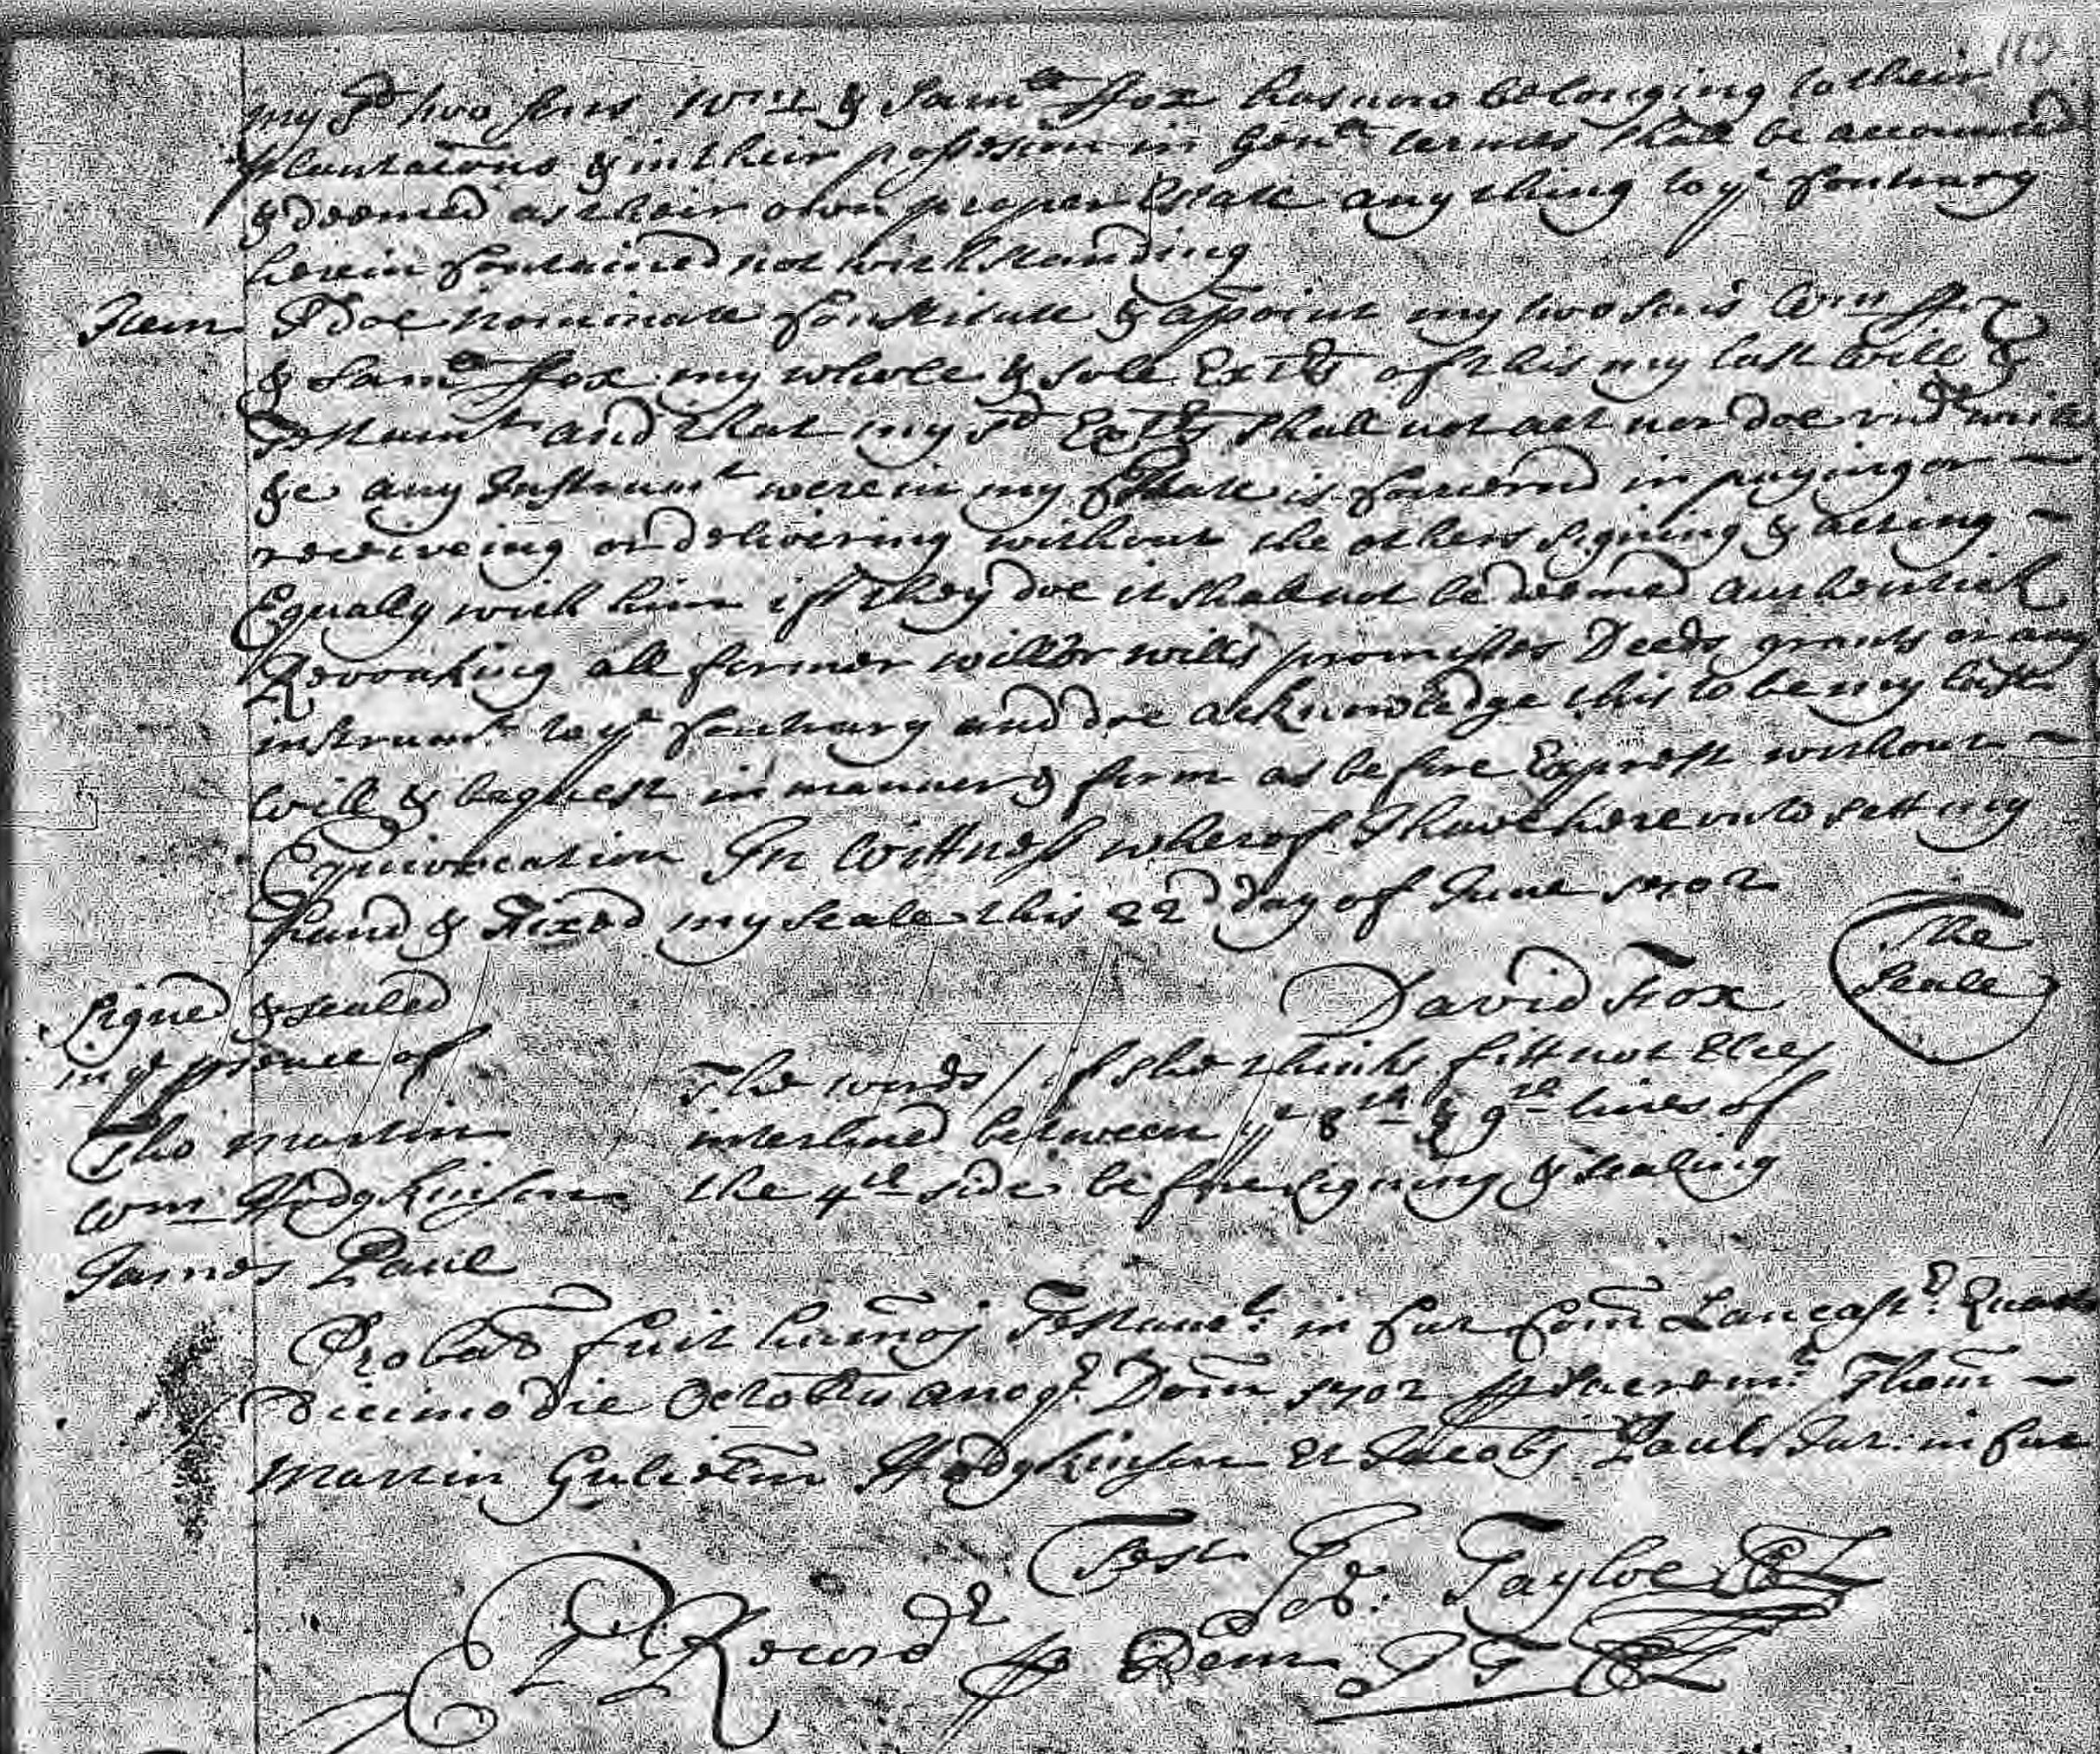 113
my sd two sons Wm & Samll ffox has now belonging to their
plantations & in their possesion in Genll termes shall be accounted
& deemed as their own proper Estate any thing to ye Contrary
herein Contained not withstanding
Item I doe nominate Constitute & apoint my two sons Wm ffox
& Samll ffox my whole & sole Extrs of this my last Will &
Testamt and that my sd Extrs shall not act nor doe
&c any Instrumt werein my Estate is Concernd in paying or
receiveing or delivering without the others signing & acting
Equally with him if they doe it shall not be deemed authentick
Revoaking all former will or wills promisses Deeds grants or any
instrumt to ye Contrary and doe acknowledge this to be my last
Will & bequest in manner & form as before Exprest without
Equivocation In Wittness wherof I have hereunto sett my
hand & fixed my seale this 22d day of June 1702
David Fox
The
Seale
Signed & sealed
in ye presence of
Tho Martin
Wm Hodgkinson
James Paul
The words / if she thinks fitt not Else /
interlined between ye 8th & 9th lines of
the 4th side before signing & sealing
Probat fuit humoj Testamt in Cur Com Lancastr Quarto
Decimo die Octobris anoq Dom 1702 p Sacramt Thom
Martin Gulielm Hodgkinson et Jacobj Paul Jur in Cur
Test Jos: Tayloe Cl
Recordr p Eadem J T Cl